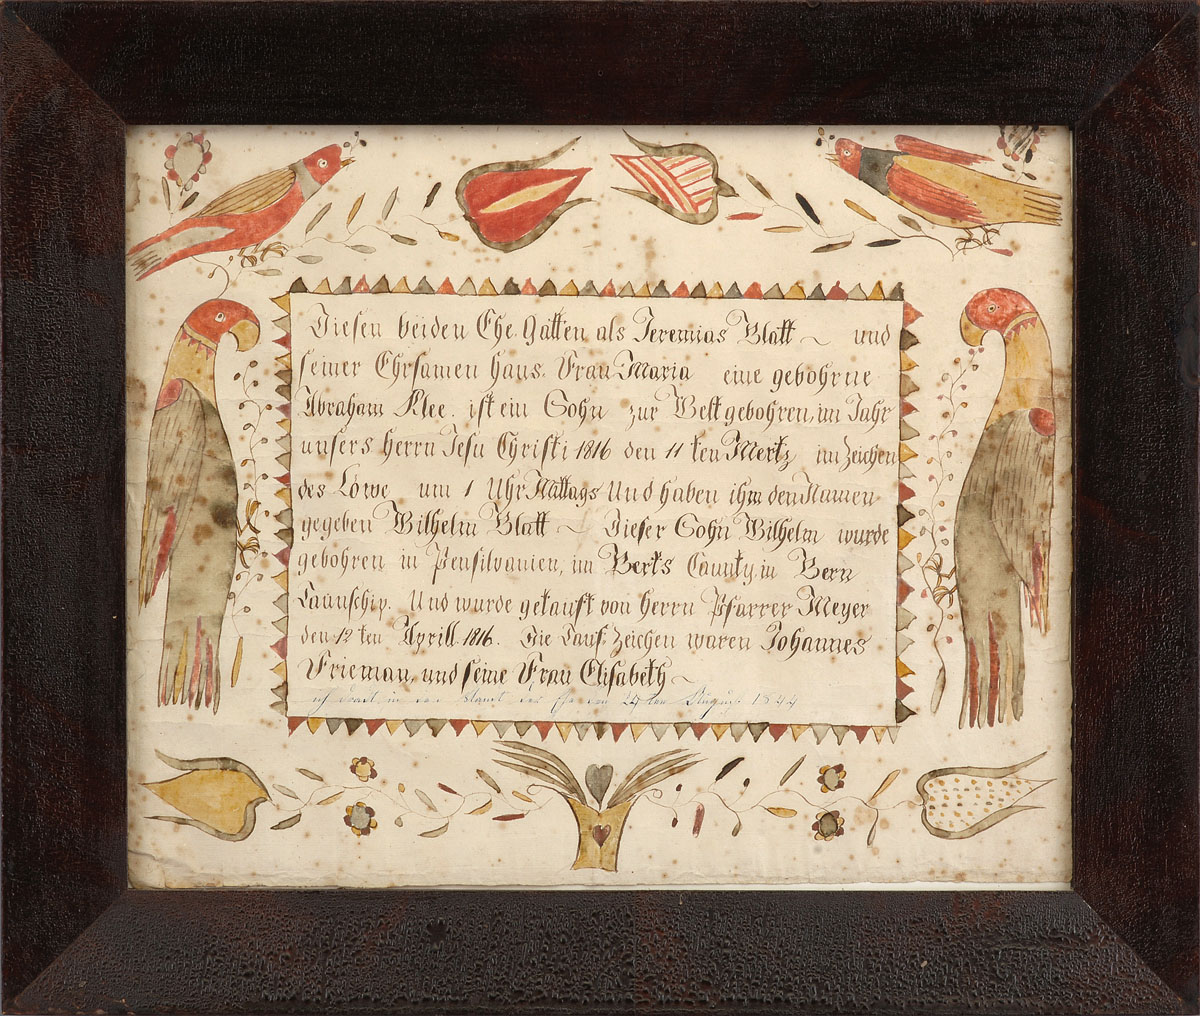 Diesen beiden Ehe. Gatten als Jeremias Blatt ~ und
seiner Ehrsamen Haus. Frau Maria eine gebohrne
Abraham Klee. ist ein Sohn zur Welt gebohren, im Jahr
unsers Herrn Jesu Christi 1816 den 11 ten Mertz im Zeichen
des Löwe um 1 Uhr Mittags Und haben ihm den Namen
gegeben Wilhelm Blatt ~ Dieser Sohn Wilhelm wurde
gebohren in Pensilvanien, im Berks Caunty, in Bern
Taunschip. Und wurde getauft von Herrn Pfarrer Meyer
den 12 ten Aprill 1816. Die Tauf. Zeichen waren Johannes
Frieman, und seine Frau Elisabeth ~
ich in den stand der Ehe den 24ten August 1844